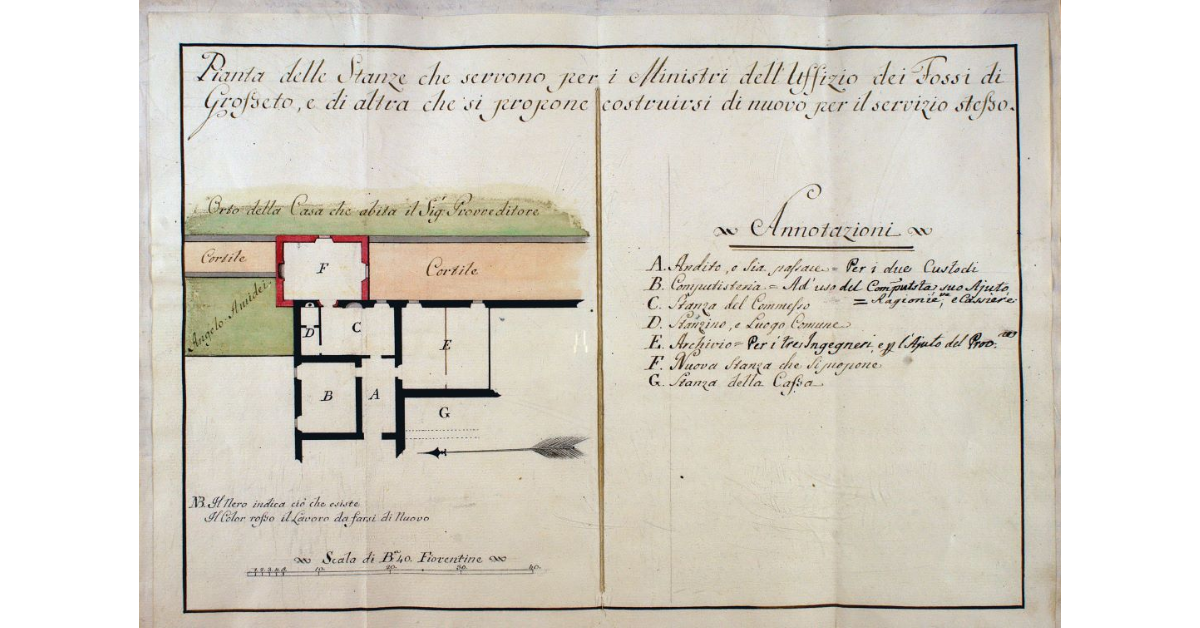 Pianta delle Stanze che servono per i Ministri dell'Uffizio dei Fossi di
Großeto, e di altra che si propone costruirsi di nuovo per il servizio steßo.
Orto della Casa che abita il Sig.r Provveditore
Cortile
F
Cortile
Angelo Amidei
D
C
E
B
A
G
NB. Il Nero indica ciò che esiste
Il Color roßo il Lavoro da farsi di Nuovo
Scala di B.a 40. Fiorentine
10. 20. 30. 40.
Annotazioni
A. Andito, o sia passare = Per i due Custodi
B. Computisteria = Ad' uso del Computista, suo Ajuto
C. Stanza del Commesso = Ragionie.re, e Cassiere
D. Stanzino, e Luogo Comune
E. Archivio = Per i tre Ingegneri, e p l'Ajuto del Provre
F. Nuova Stanza che si propone
G. Stanza della Caßa